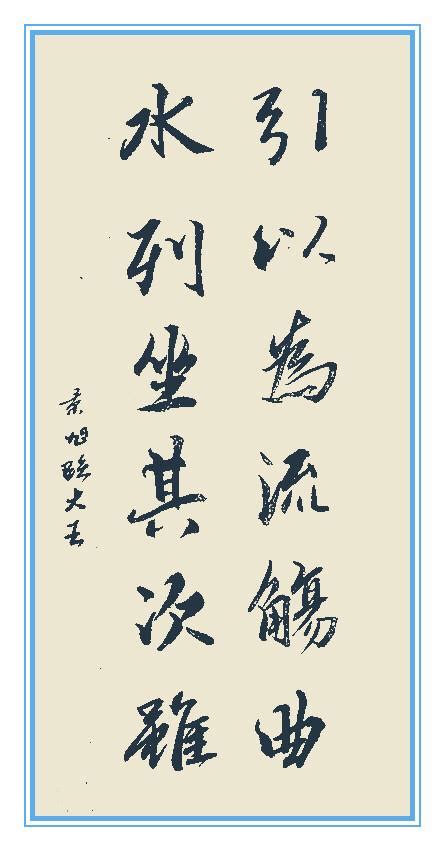 引以為流觴曲
水列坐其次雖
景旭臨大王